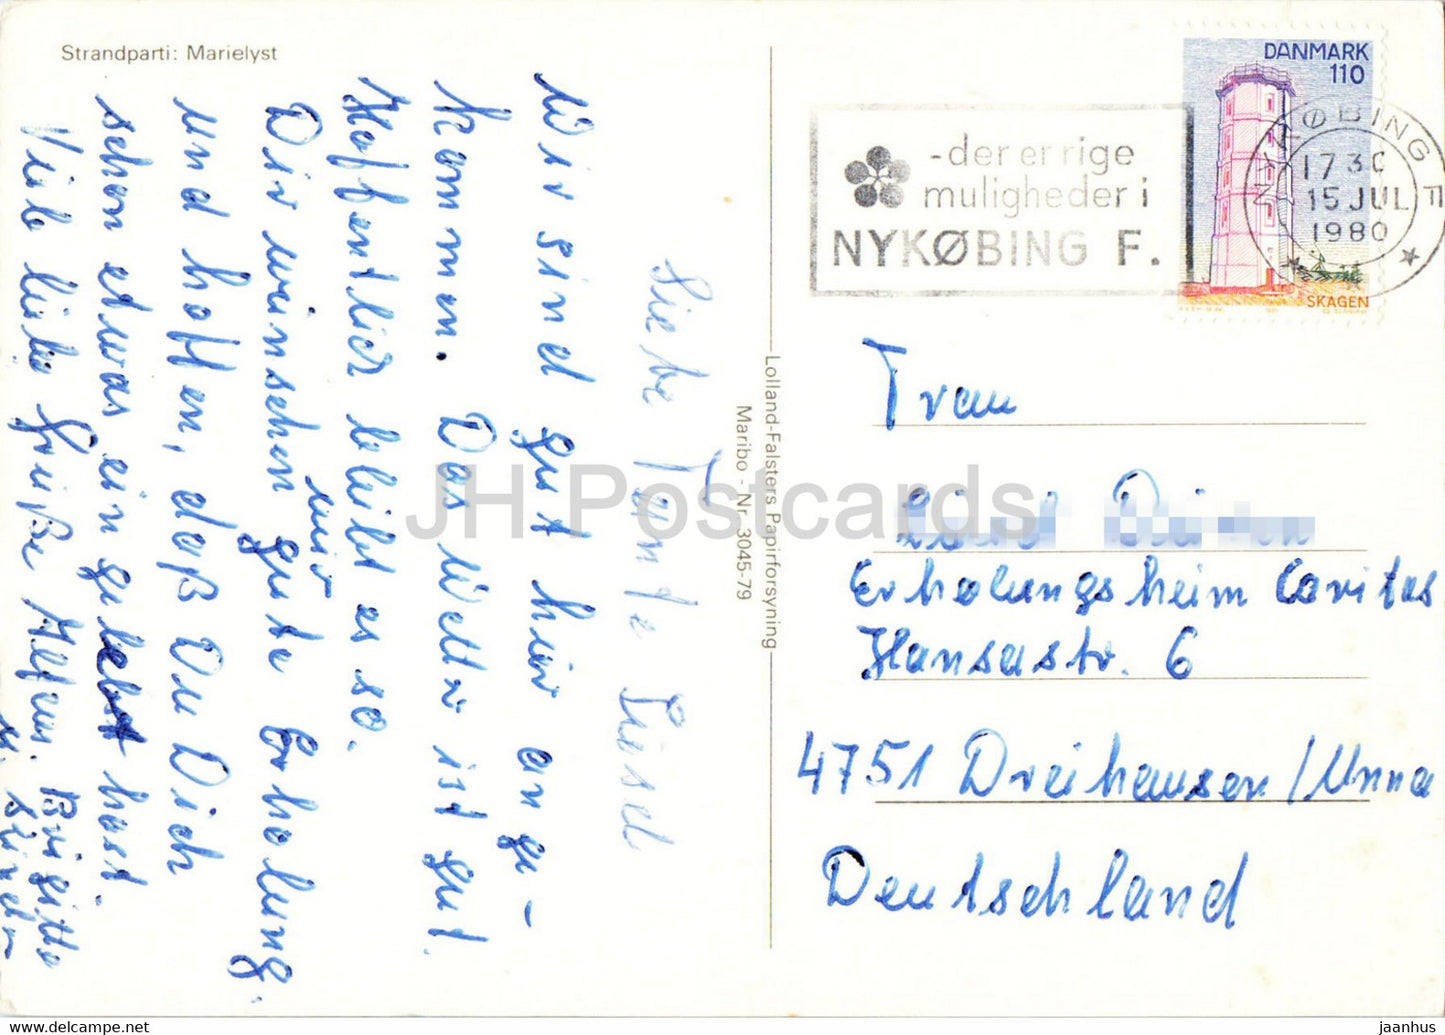 Strandparti: Marielyst
Liebe Tante Liesel
Wir sind gut hier ange-
kommen. Das Wetter ist gut.
Hoffentlich bleibt es so.
Dir wünschen wir gute Erholung.
und hoffen, daß Du Dich
schon etwas eingelebt hast.
Viele liebe Grüße Alfons. Brigitte
u.
Lolland-Falsters Papirforsyning
Maribo - Nr. 3045-79
-der er rige
muligheder i
NYKØBING F.
DANMARK
110
SKAGEN
NYKØBING F
17 30
15 JUL
1980
Frau
Erholungsheim Caritas
Hansastr. 6
4751 Dreihausen/Unna
Deutschland
JH Postcards
www.delcampe.net
jaanhus